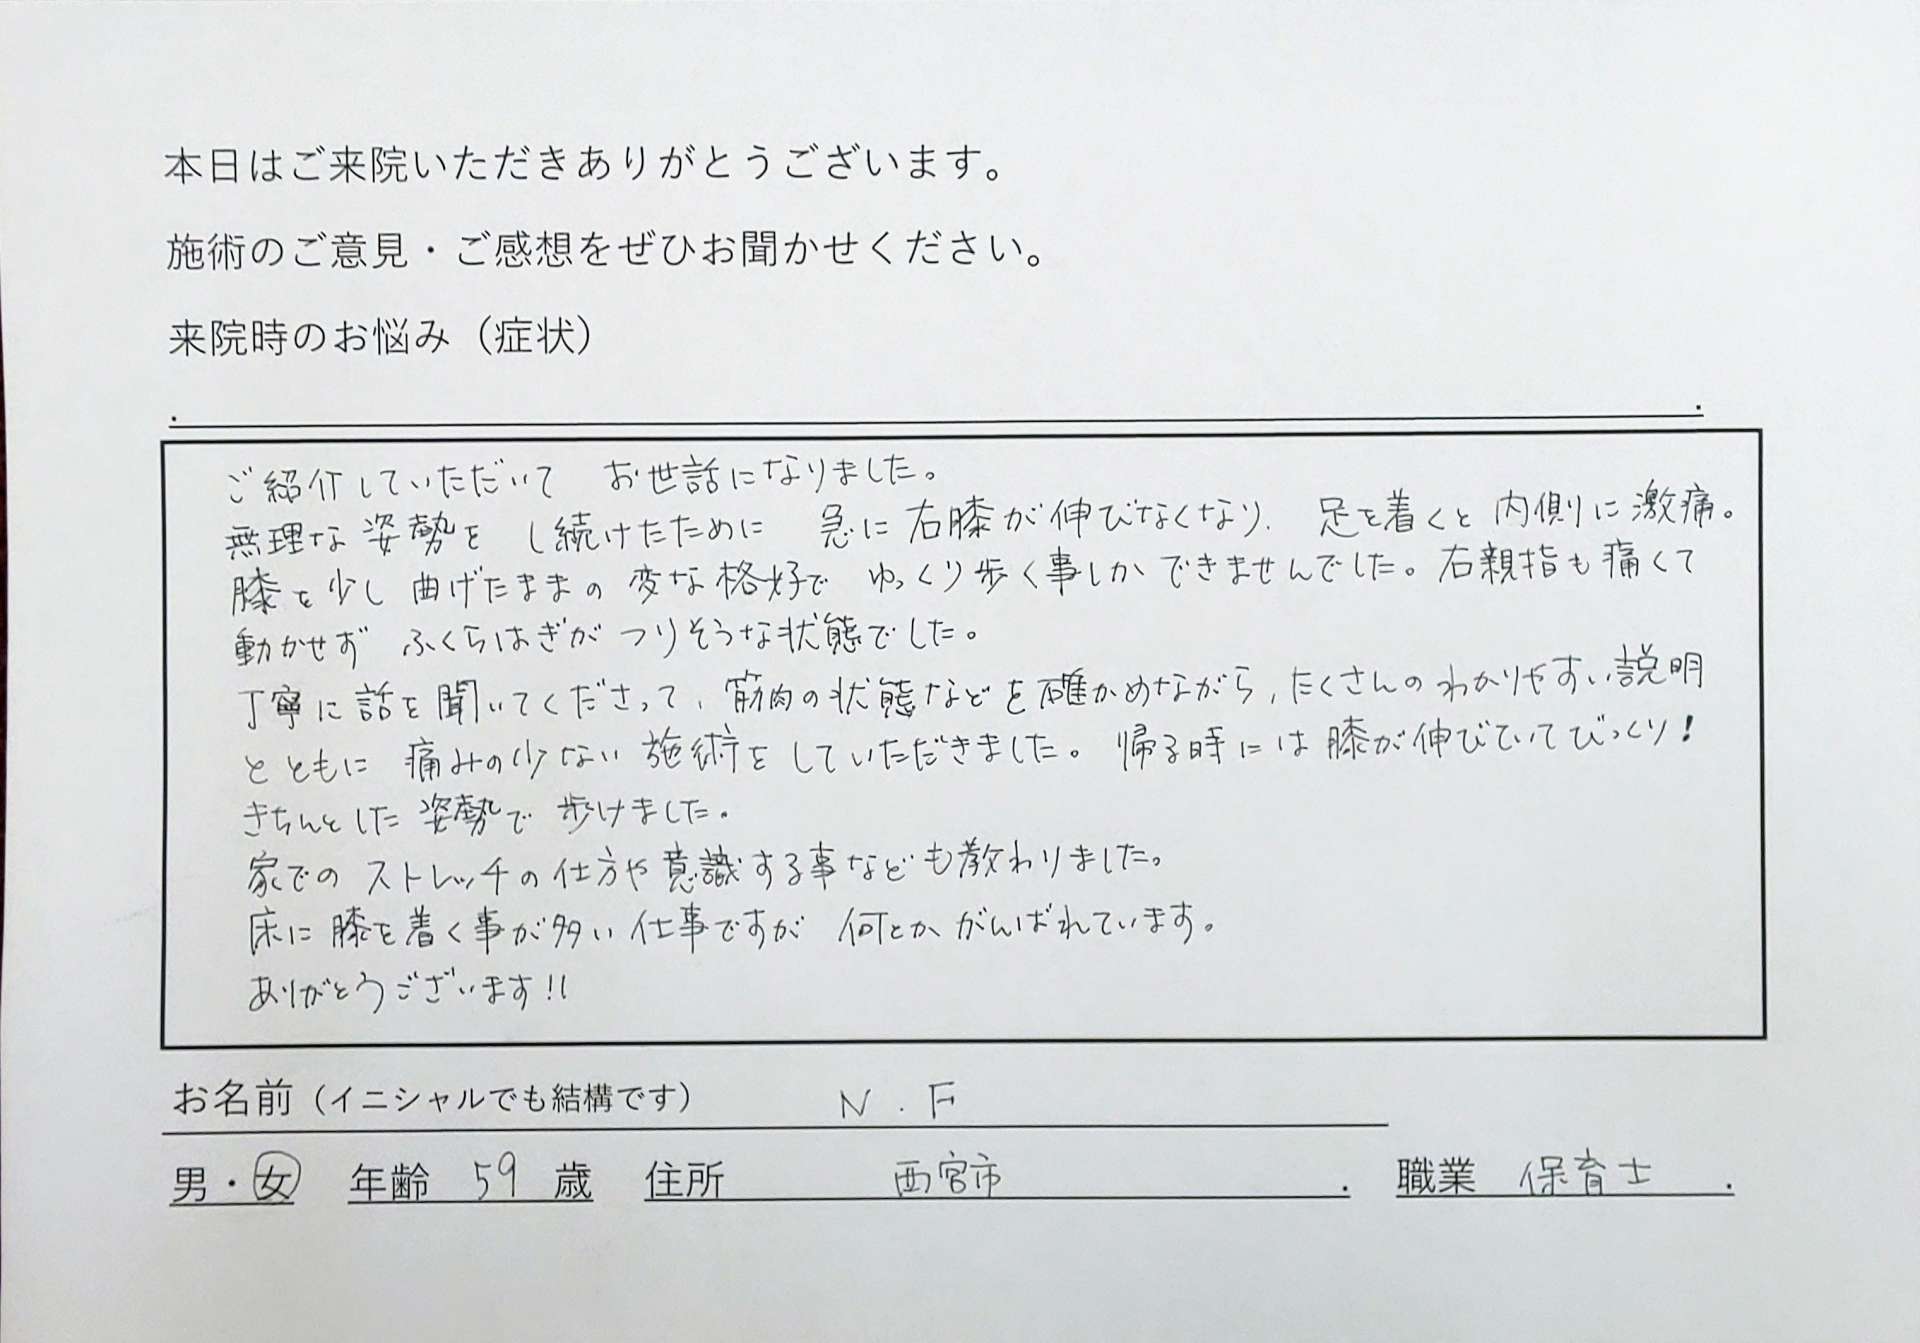 本日はご来院いただきありがとうございます。
施術のご意見・ご感想をぜひお聞かせください。
来院時のお悩み（症状）
ご紹介していただいて お世話になりました。
無理な姿勢を し続けたために 急に右膝が伸びなくなり、 足を着くと内側に激痛。
膝を少し曲げたままの変な格好で ゆっくり歩く事しかできませんでした。右親指も痛くて
動かせず ふくらはぎがつりそうな状態でした。
丁寧に話を聞いてくださって、筋肉の状態などを確かめながら、たくさんのわかりやすい説明
とともに 痛みの少ない施術をしていただきました。帰る時には膝が伸びていてびっくり！
きちんとした姿勢で歩けました。
家でのストレッチの仕方や意識する事なども教わりました。
床に膝を着く事が多い仕事ですが 何とかがんばれています。
ありがとうございます!!
お名前（イニシャルでも結構です） N.F
男・女 年齢 59 歳 住所 西宮市 . 職業 保育士 .